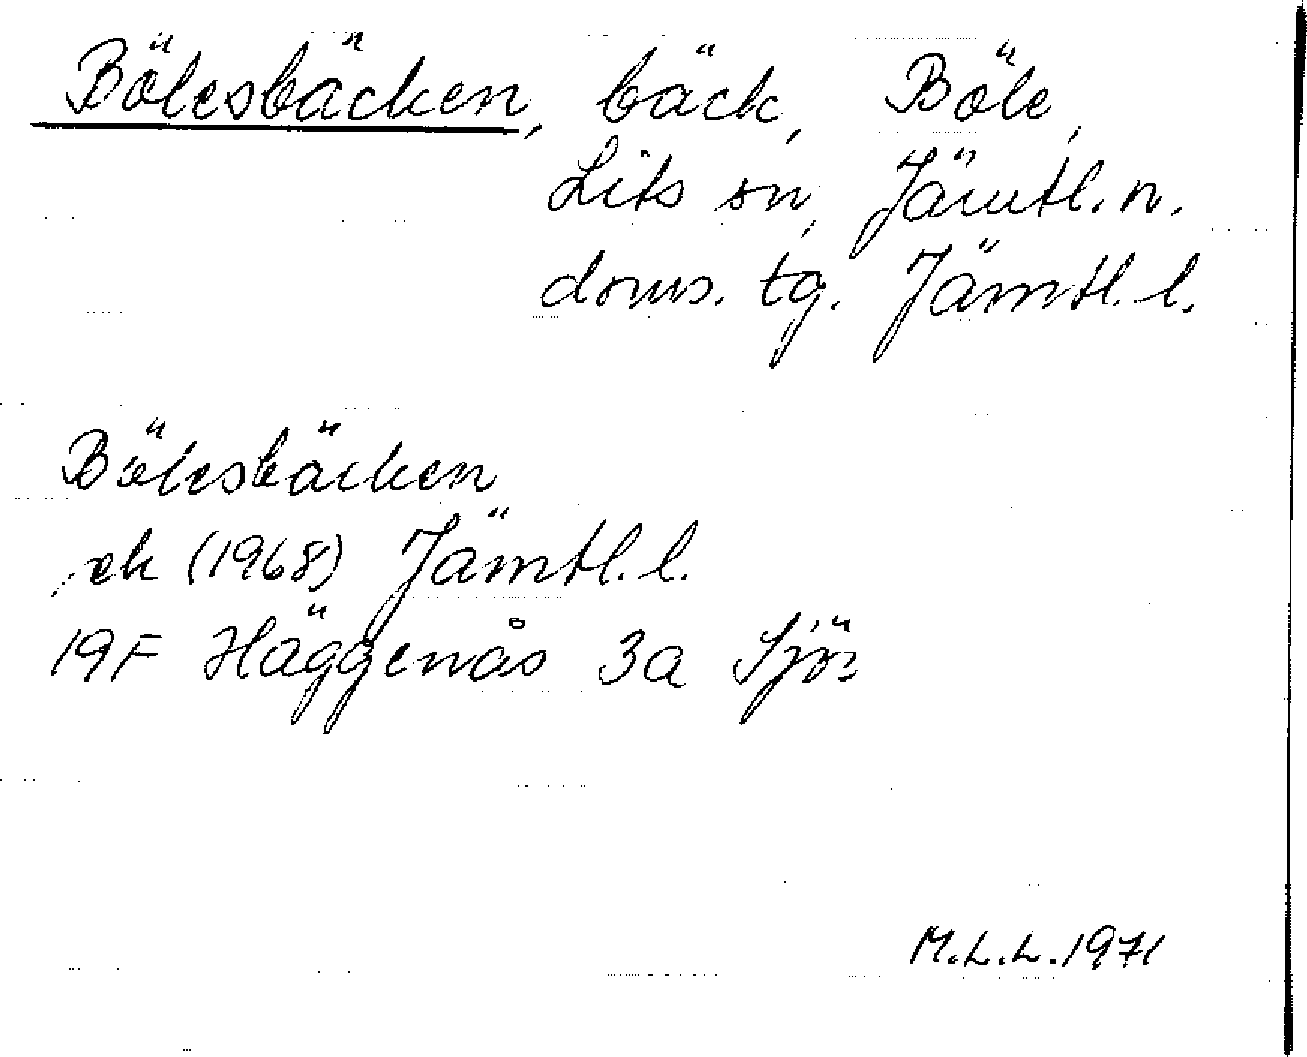 Bölesbäcken, bäck, Böle,
Lits sn, Jämtl. n.
doms. tg. Jämtl. l.
Bölesbäcken
ek (1968) Jämtl. l.
19F Häggenås 3a Sjö:
M.L.L. 1971